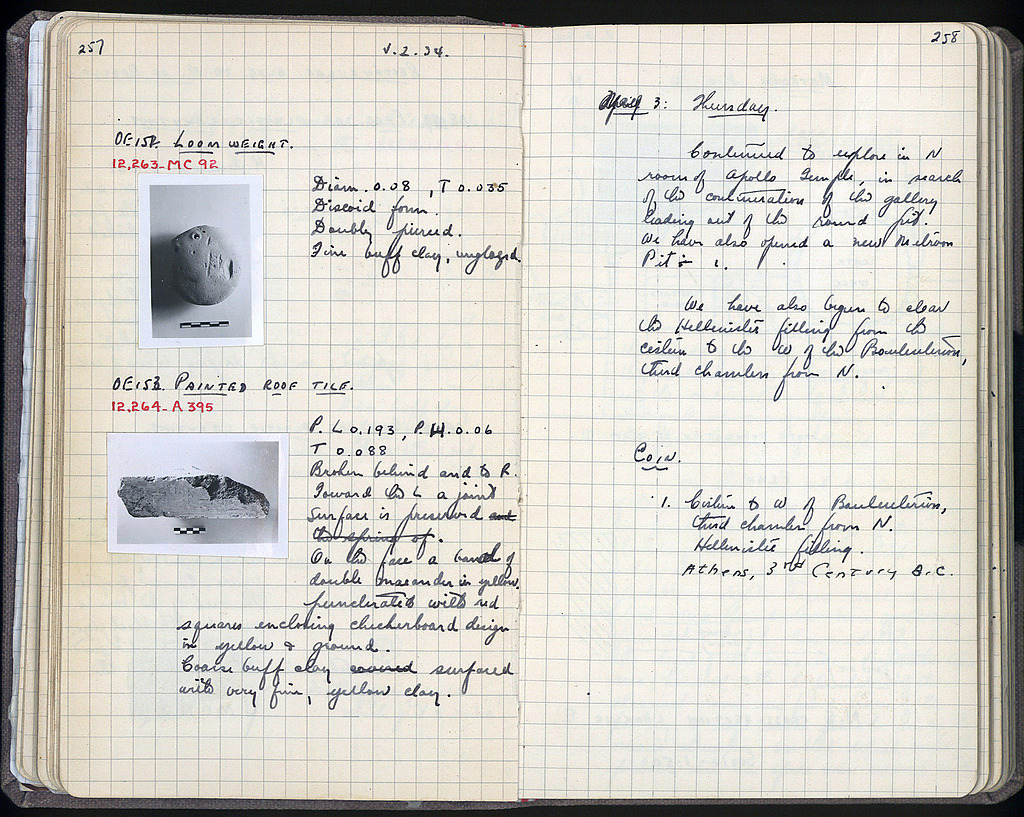 257
V.2.34.
OE 152. LOOM WEIGHT.
12,263-MC 92
Diam. 0.08, T 0.035
Discoid form.
Doubly pierced.
Fine buff clay, unglazed.
OE 153. PAINTED ROOF TILE.
12,264-A 395
P. L 0.193, P. H. 0.06
T 0.088
Broken behind and to R.
Toward the L a joint
surface is preserved and
the spring of.
On the face a band of
double maeander in yellow,
punctuated with red
squares enclosing checkerboard design
in yellow & ground.
Coarse buff clay covered surfaced
with very fine, yellow clay.
258
3: Thursday.
Continued to explore in N
room of Apollo Temple, in search
of the continuation of the gallery
leading out of the round pit.
We have also opened a new Metroon
Pit 1.
We have also begun to clear
the Hellenistic filling from the
cistern to the W of the Bouleuterion,
third chamber from N.
COIN.
1. Cistern to W of Bouleuterion,
third chamber from N.
Hellenistic filling.
Athens, 3rd Century B.C.